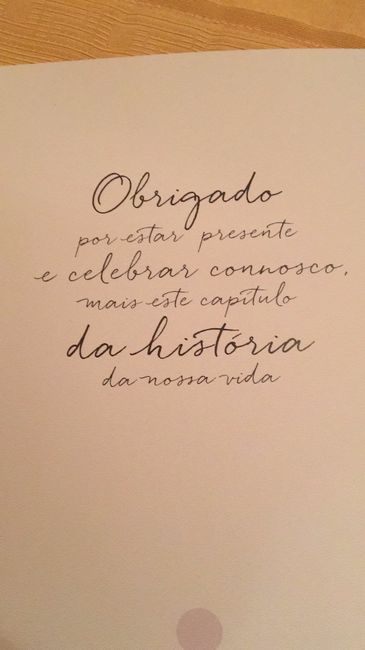 Obrigado
por estar presente
e celebrar connosco,
mais este capítulo
da história
da nossa vida